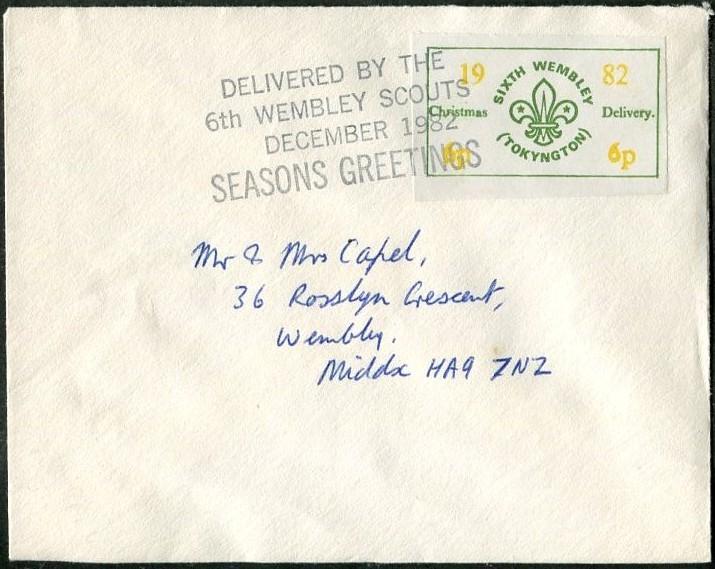 DELIVERED BY THE
6th WEMBLEY SCOUTS
DECEMBER 1982
SEASONS GREETINGS
19 82
SIXTH WEMBLEY
Christmas Delivery.
(TOKYNGTON)
6p 6p
Mr & Mrs Capel,
36 Rosslyn Crescent,
Wembley.
Middx HA9 7NZ